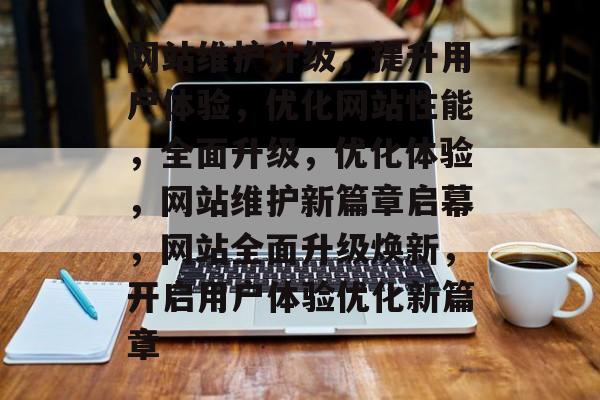 网站维护升级，提升用
户体验，优化网站性能
，全面升级，优化体验
，网站维护新篇章启幕
，网站全面升级焕新，
开启用户体验优化新篇
章